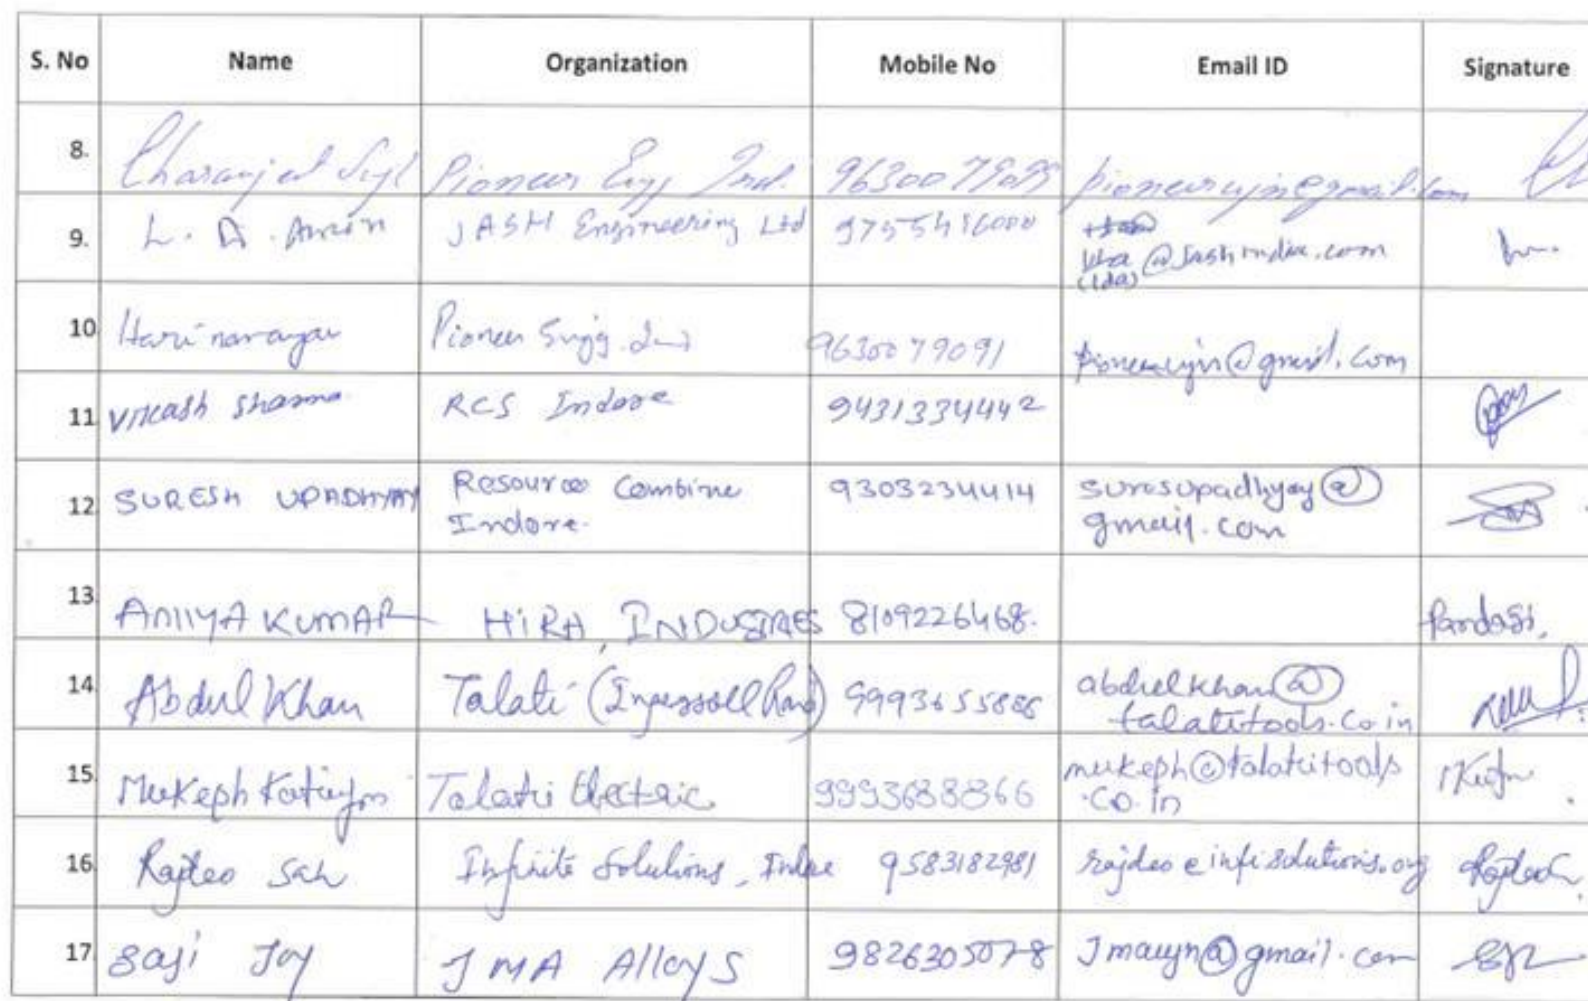 S. No Name Organization Mobile No Email ID Signature
8. Charanjeet Pioneer Engg Ind. pioneerujn@gmail.com
9. L. D. Amin JASH Engineering Ltd 9755416000
@Jashindia.com
(lda)
10. Harinarayan Pioneer Engg. Ind 9630079091 pioneerujn@gmail.com
11. Vikash Sharma RCS Indore 9431334442
12. SURESH UPADHYAY Resource Combine 9303234414 suresupadhyay@
Indore. gmail.com
13. KUMAR HIRA INDUSTRIES 8109226468.
14. Abdul Khan Talati (Ingersoll Rand) abdulkhan@
talatitools.co.in
15. Mukeph Talati Electric 9993688866 mukeph@talatitools
.co.in
16. Rajdeo Sah Infinite Solutions, Indore 9583182981 rajdeo@infisolutions.org
17. Saji Joy JMA Alloys 9826305078 Jmaujn@gmail.com